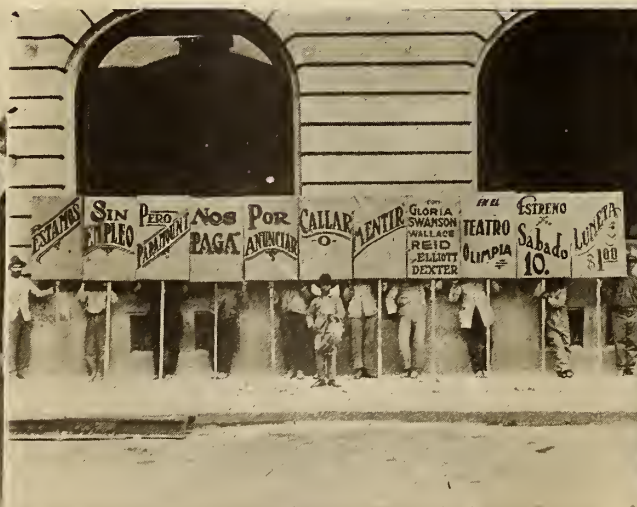 ESTAMOS
SIN
EMPLEO
PERO
PARAMOUNT
NOS
PAGA
POR
ANUNCIAR
CALLAR
O
MENTIR
CON
GLORIA
SWANSON
WALLACE
REID
ELLIOTT
DEXTER
EN EL
TEATRO
OLIMPIA
ESTRENO
Sabado
10.
LUNETA
$1.00